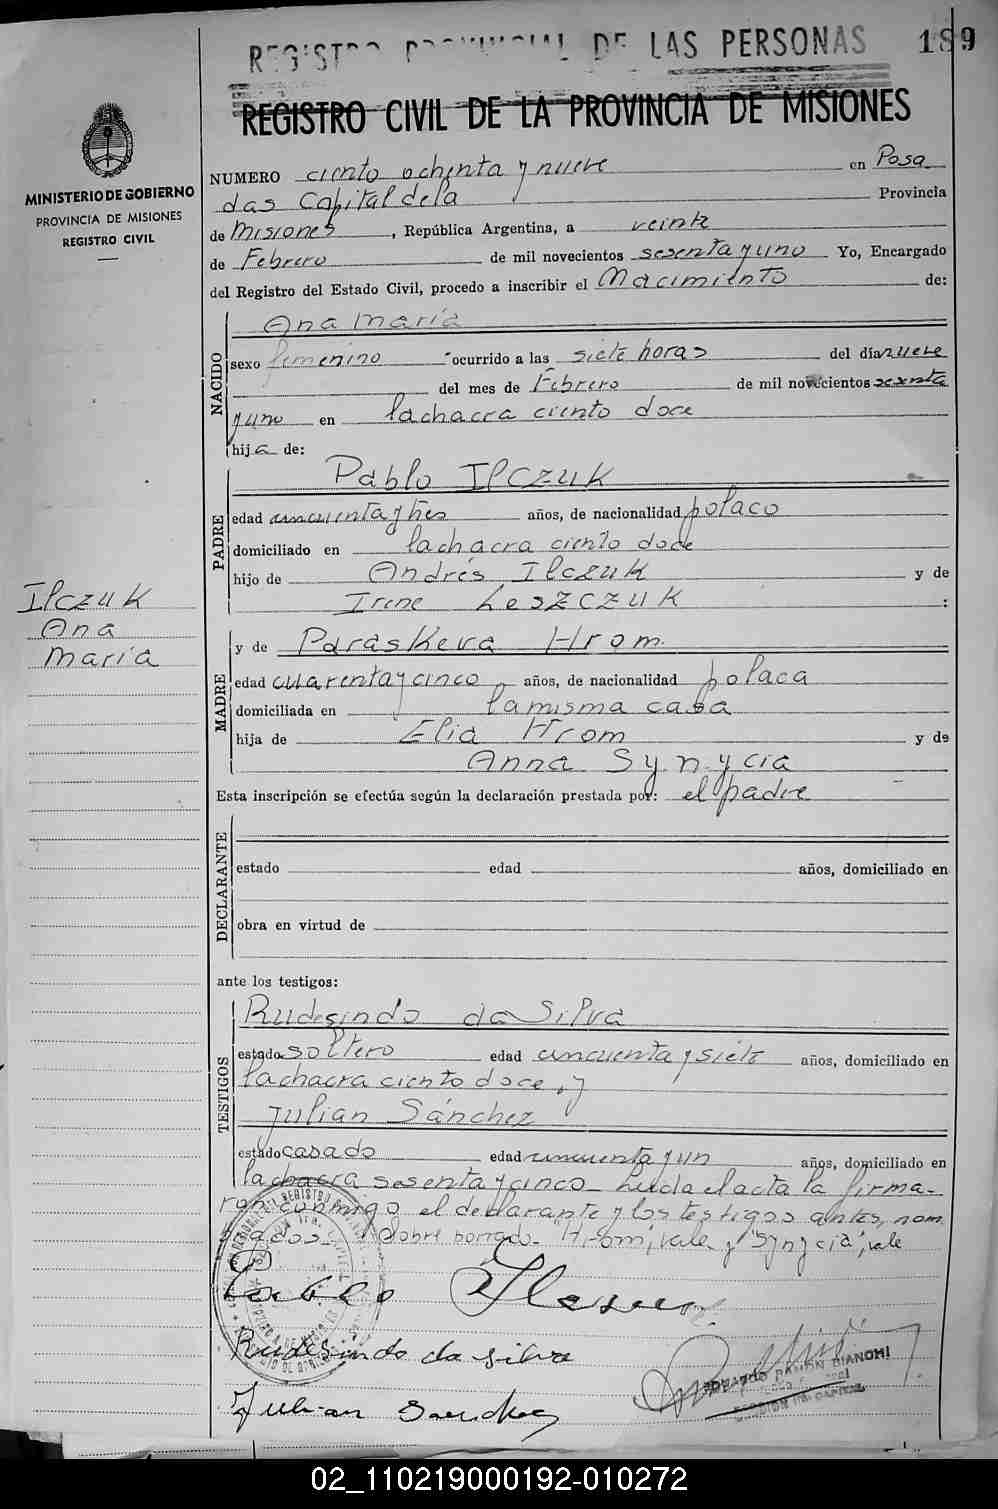 REGISTRO PROVINCIAL DE LAS PERSONAS
189
REGISTRO CIVIL DE LA PROVINCIA DE MISIONES
MINISTERIO DE GOBIERNO
PROVINCIA DE MISIONES
REGISTRO CIVIL
NUMERO ciento ochenta y nueve en Posa
das Capital de la Provincia
de Misiones, República Argentina, a veinte
de Febrero de mil novecientos sesenta y uno Yo, Encargado
del Registro del Estado Civil, procedo a inscribir el Nacimiento de:
NACIDO
Ana María
sexo femenino ocurrido a las siete horas del día nueve
del mes de Febrero de mil novecientos sesenta
y uno en la chacra ciento doce
hija de:
PADRE
Pablo Ilczuk
edad cincuenta y tres años, de nacionalidad polaco
domiciliado en la chacra ciento doce
hijo de Andrés Ilczuk y de
Irene Leszczuk :
Ilczuk
Ana
María
MADRE
y de Paraskeva Hrom
edad cuarenta y cinco años, de nacionalidad polaca
domiciliada en la misma casa
hija de Elia Hrom y de
Anna Synycia
Esta inscripción se efectúa según la declaración prestada por: el padre
DECLARANTE
estado edad años, domiciliado en
obra en virtud de
ante los testigos:
TESTIGOS
Rudesindo da Silva
estado soltero edad cincuenta y siete años, domiciliado en
la chacra ciento doce, y
Julian Sánchez
estado casado edad cincuenta y un años, domiciliado en
la chacra sesenta y cinco. Leída el acta la firma-
ron conmigo el declarante y los testigos antes nom
brados. Sobre borrado "Hrom", vale y "Synycia", vale
Pablo Ilczuk
Rudesindo da silva
Julian Sanchez
EDUARDO RAMON BIANCHI
02_110219000192-010272